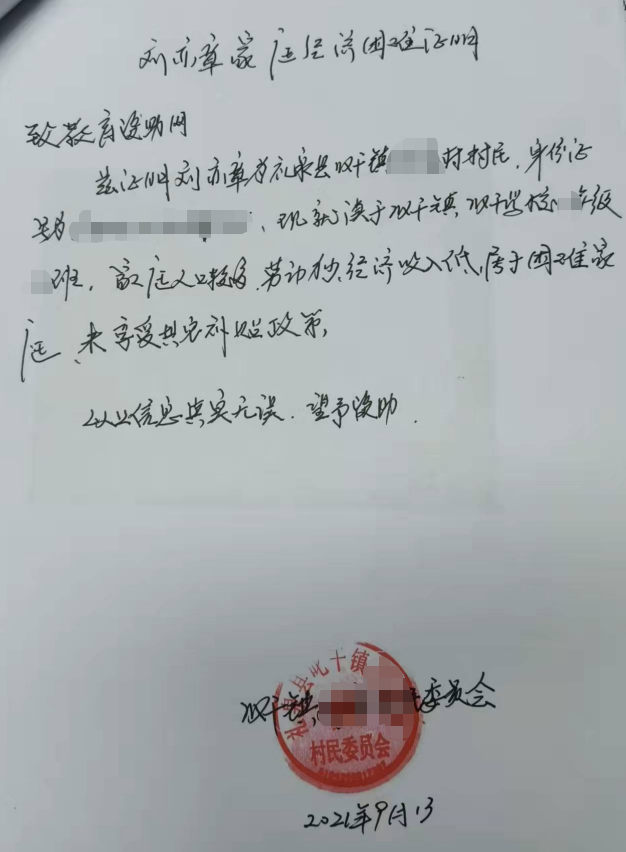 刘亦章家庭经济困难证明
致教育资助网
兹证明刘亦章为礼泉县叱干镇村村民,身份证
号为,现就读于叱干镇叱干学校年级
班,家庭人口较多,劳动力少,经济收入低,属于困难家
庭,未享受其它补助政策,
以上信息真实无误.望予资助.
礼泉县叱干镇
叱干镇委员会
村民委员会
2021年9月13